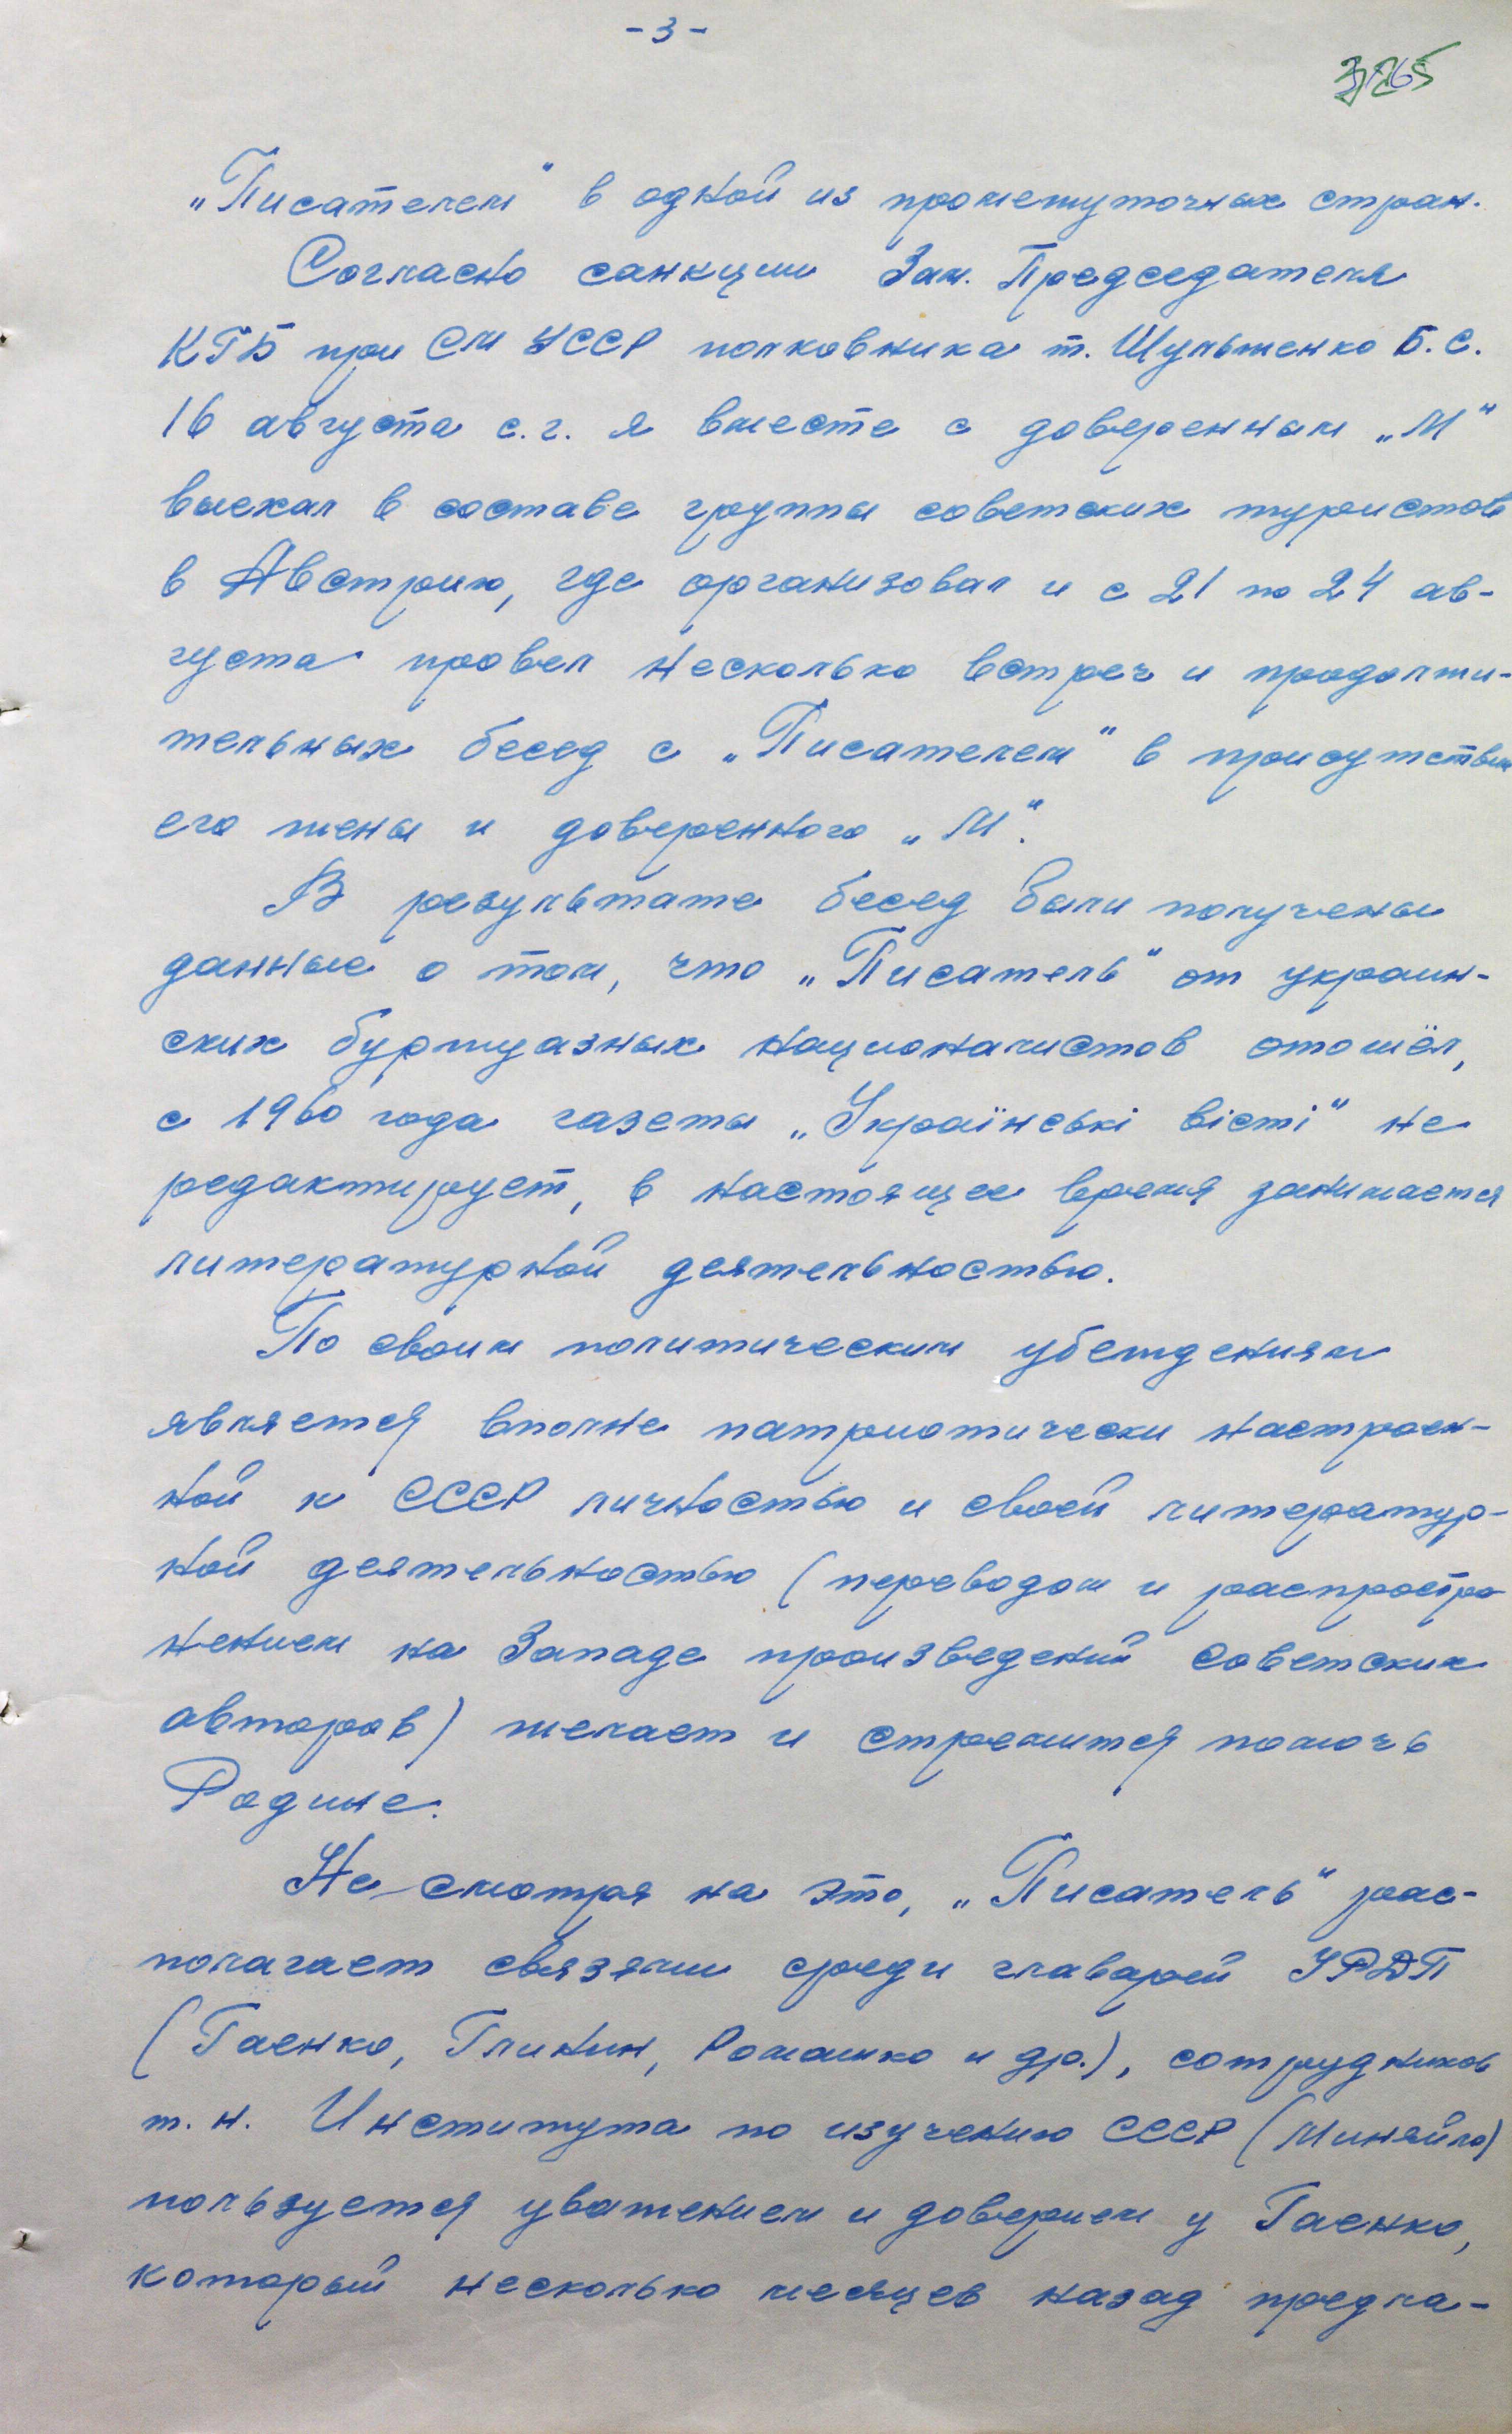 - 3 -
„Писателем“ в одной из промежуточных стран.
Согласно санкции Зам. Председателя
КГБ при СМ УССР полковника т. Шульженко Б.С.
16 августа с.г. я вместе с доверенным „М“
выехал в составе группы советских туристов
в Австрию, где организовал и с 21 по 24 ав-
густа провел несколько встреч и продолжи-
тельных бесед с „Писателем“ в присутствии
его жены и доверенного „М“.
В результате бесед были получены
данные о том, что „Писатель“ от украин-
ских буржуазных националистов отошёл,
с 1960 года газеты „Українські вісті“ не
редактирует, в настоящее время занимается
литературной деятельностью.
По своим политическим убеждениям
является вполне патриотически настроен-
ной к СССР личностью и своей литератур-
ной деятельностью (переводом и распростра
нением на Западе произведений советских
авторов) желает и стремится помочь
Родине.
Не смотря на это, „Писатель“ рас-
полагает связями среди главарей УРДП
(Гаенко, Глинин, Ромашко и др.), сотрудников
т.н. Института по изучению СССР (Миняйло)
пользуется уважением и доверием у Гаенко,
который несколько месяцев назад предла-